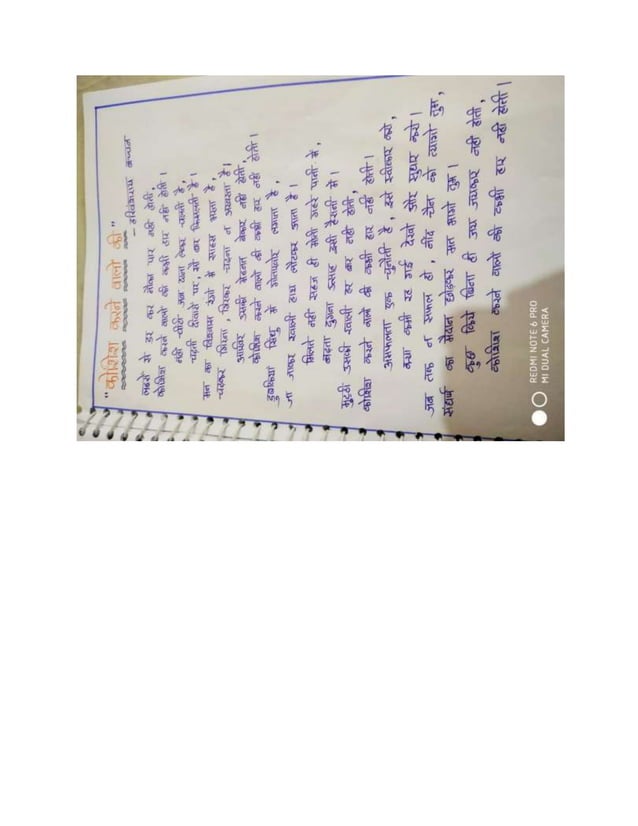 "कोशिश करने वालो की"
- हरिवंशराय बच्चन
लहरो से डर कर नौका पार नही होती,
कोशिश करने वालो की कभी हार नही होती।
नन्ही चीटी जब दाना लेकर चलती है,
चढ़ती दीवारो पर, सौ बार फिसलती है।
मन का विश्वास रगो मे साहस भरता है,
चढ़कर गिरना, गिरकर चढ़ना न अखरता है।
आखिर उसकी मेहनत बेकार नही होती,
कोशिश करने वालो की कभी हार नही होती।
डुबकियां सिंधु मे गोताखोर लगाता है,
जा जाकर खाली हाथ लौटकर आता है।
मिलते नही सहज ही मोती गहरे पानी मे,
बढ़ता दुगना उत्साह इसी हैरानी मे।
मुट्ठी उसकी खाली हर बार नही होती,
कोशिश करने वाले की कभी हार नही होती।
असफलता एक चुनौती है, इसे स्वीकार करो,
क्या कमी रह गई देखो और सुधार करो।
जब तक न सफल हो, नींद चैन को त्यागो तुम,
संघर्ष का मैदान छोड़कर मत भागो तुम।
कुछ किये बिना ही जय जयकार नही होती,
कोशिश करने वालो की कभी हार नही होती।
REDMI NOTE 6 PRO
MI DUAL CAMERA